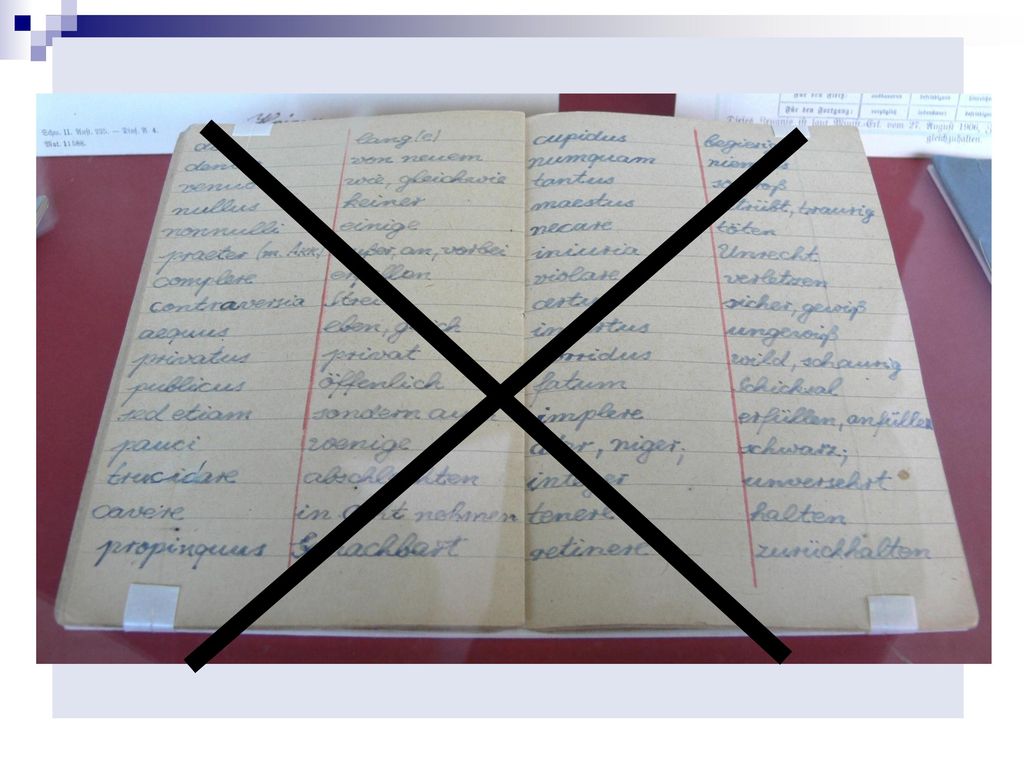 Schu. II. Nust. 235. — Dief. N 4.
Mat. 11588.
Für den Fleiß:
Für den Fortgang:
vom 27. August 1906,
gleichzuhalten.
lang(e)
von neuem
wie, gleichwie
nullus keiner
nonnulli einige
praeter (m. Akk.) außer, an, vorbei
complere
contraversia
aequus eben,
privatus privat
publicus öffenlich
sed etiam sondern
pauci wenige
trucidare abschlachten
cavere in Acht nehmen
propinquus benachbart
cupidus
numquam
tantus
maestus betrübt, traurig
necare töten
iniuria Unrecht
violare verletzen
sicher, gewiß
ungewiß
wild, schaurig
fatum Schicksal
implere erfüllen, anfüllen
ater, niger; schwarz;
integer unversehrt
tenere halten
retinere zurückhalten